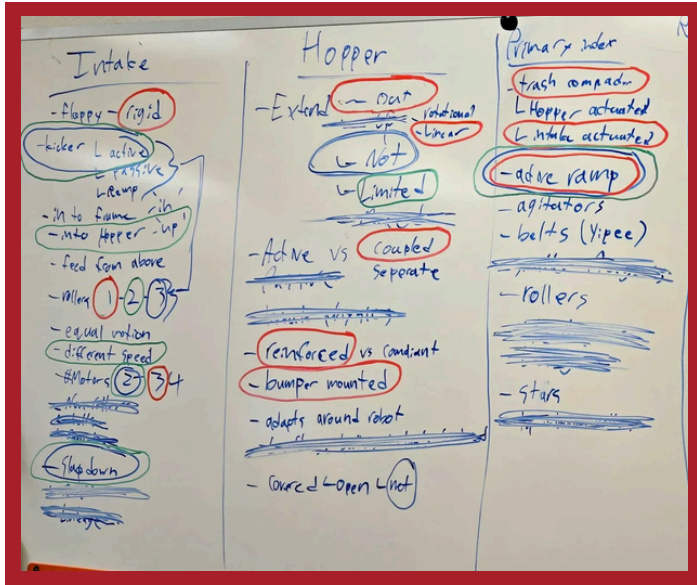 Intake
- floppy - rigid
- kicker L active
L passive
L Ramp
- in to frame - in
- into Hopper - up
- feed from above
- rollers 1 - 2 - 3
- equal motion
- different speed
- #Motors 2 - 3 4
- Slapdown
Hopper
- Extend - out
- rotational
- Linear
L Not
L Limited
- Active vs coupled
Seperate
- reinforced vs compliant
- bumper mounted
- adapts around robot
- Covered L open L not
Primary index
- trash compador
L Hopper actuated
L intake actuated
- active ramp
- agitators
- belts (Yipee)
- rollers
- Stars
R